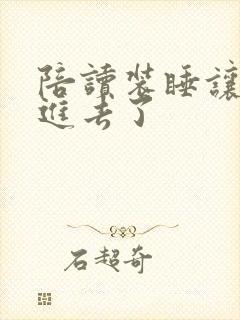 陪讀装睡讓
進去了
石超奇